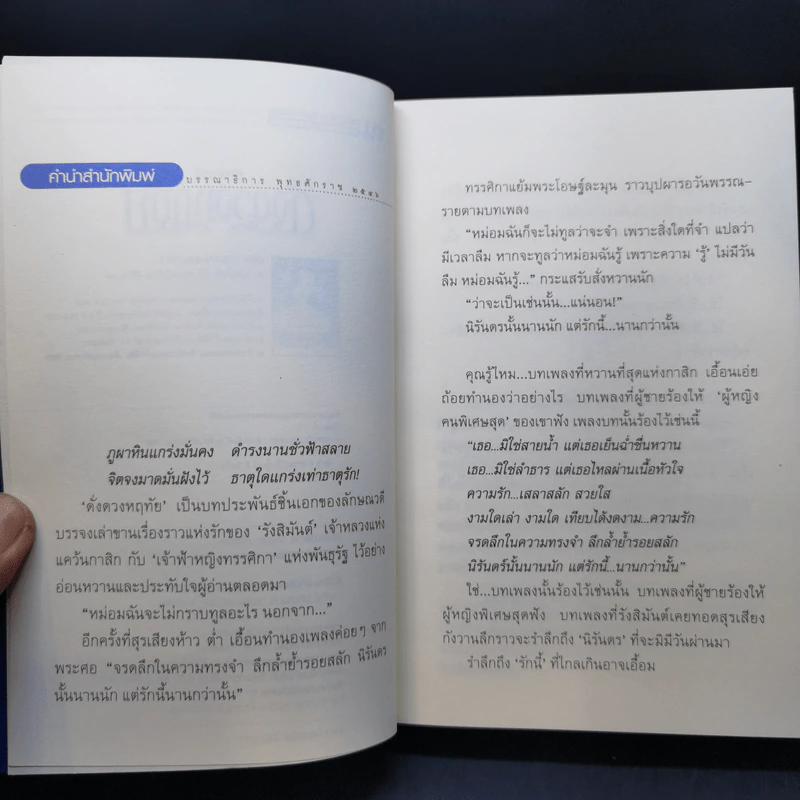 คำนำสำนักพิมพ์
บรรณาธิการ พุทธศักราช ๒๕๔๖
ภูผาหินแกร่งมั่นคง ดำรงนานชั่วฟ้าสลาย
จิตจงมาดมั่นฝังไว้ ธาตุใดแกร่งเท่าธาตุรัก!
‘ดั่งดวงหฤทัย’ เป็นบทประพันธ์ชิ้นเอกของลักษณวดี
บรรจงเล่าขานเรื่องราวแห่งรักของ ‘รังสิมันต์’ เจ้าหลวงแห่ง
แคว้นกาสิก กับ ‘เจ้าฟ้าหญิงทรรศิกา’ แห่งพันธุรัฐ ไว้อย่าง
อ่อนหวานและประทับใจผู้อ่านตลอดมา
“หม่อมฉันจะไม่กราบทูลอะไร นอกจาก...”
อีกครั้งที่สุรเสียงห้าว ต่ำ เอื้อนทำนองเพลงค่อยๆ จาก
พระศอ “จรดลึกในความทรงจำ ลึกล้ำย้ำรอยสลัก นิรันดร
นั้นนานนัก แต่รักนี้นานกว่านั้น”
ทรรศิกาแย้มพระโอษฐ์ละมุน ราวบุปผารอวันพรรณ-
รายตามบทเพลง
“หม่อมฉันก็จะไม่ทูลว่าจะจำ เพราะสิ่งใดที่จำ แปลว่า
มีเวลาลืม หากจะทูลว่าหม่อมฉันรู้ เพราะความ ‘รู้’ ไม่มีวัน
ลืม หม่อมฉันรู้...” กระแสรับสั่งหวานนัก
“ว่าจะเป็นเช่นนั้น...แน่นอน!”
นิรันดรนั้นนานนัก แต่รักนี้...นานกว่านั้น
คุณรู้ไหม...บทเพลงที่หวานที่สุดแห่งกาสิก เอื้อนเอ่ย
ถ้อยทำนองว่าอย่างไร บทเพลงที่ผู้ชายร้องให้ ‘ผู้หญิง
คนพิเศษสุด’ ของเขาฟัง เพลงบทนั้นร้องไว้เช่นนี้
“เธอ...มิใช่สายน้ำ แต่เธอเย็นฉ่ำชื่นหวาน
เธอ...มิใช่ลำธาร แต่เธอไหลผ่านเนื้อหัวใจ
ความรัก...เสลาสลัก สวยใส
งามใดเล่า งามใด เทียบได้งดงาม...ความรัก
จรดลึกในความทรงจำ ลึกล้ำย้ำรอยสลัก
นิรันดร์นั้นนานนัก แต่รักนี้...นานกว่านั้น”
ใช่...บทเพลงนั้นร้องไว้เช่นนั้น บทเพลงที่ผู้ชายร้องให้
ผู้หญิงพิเศษสุดฟัง บทเพลงที่รังสิมันต์เคยทอดสุรเสียง
กังวานลึกราวจะรำลึกถึง ‘นิรันดร’ ที่จะมิมีวันผ่านมา
รำลึกถึง ‘รักนี้’ ที่ไกลเกินอาจเอื้อม